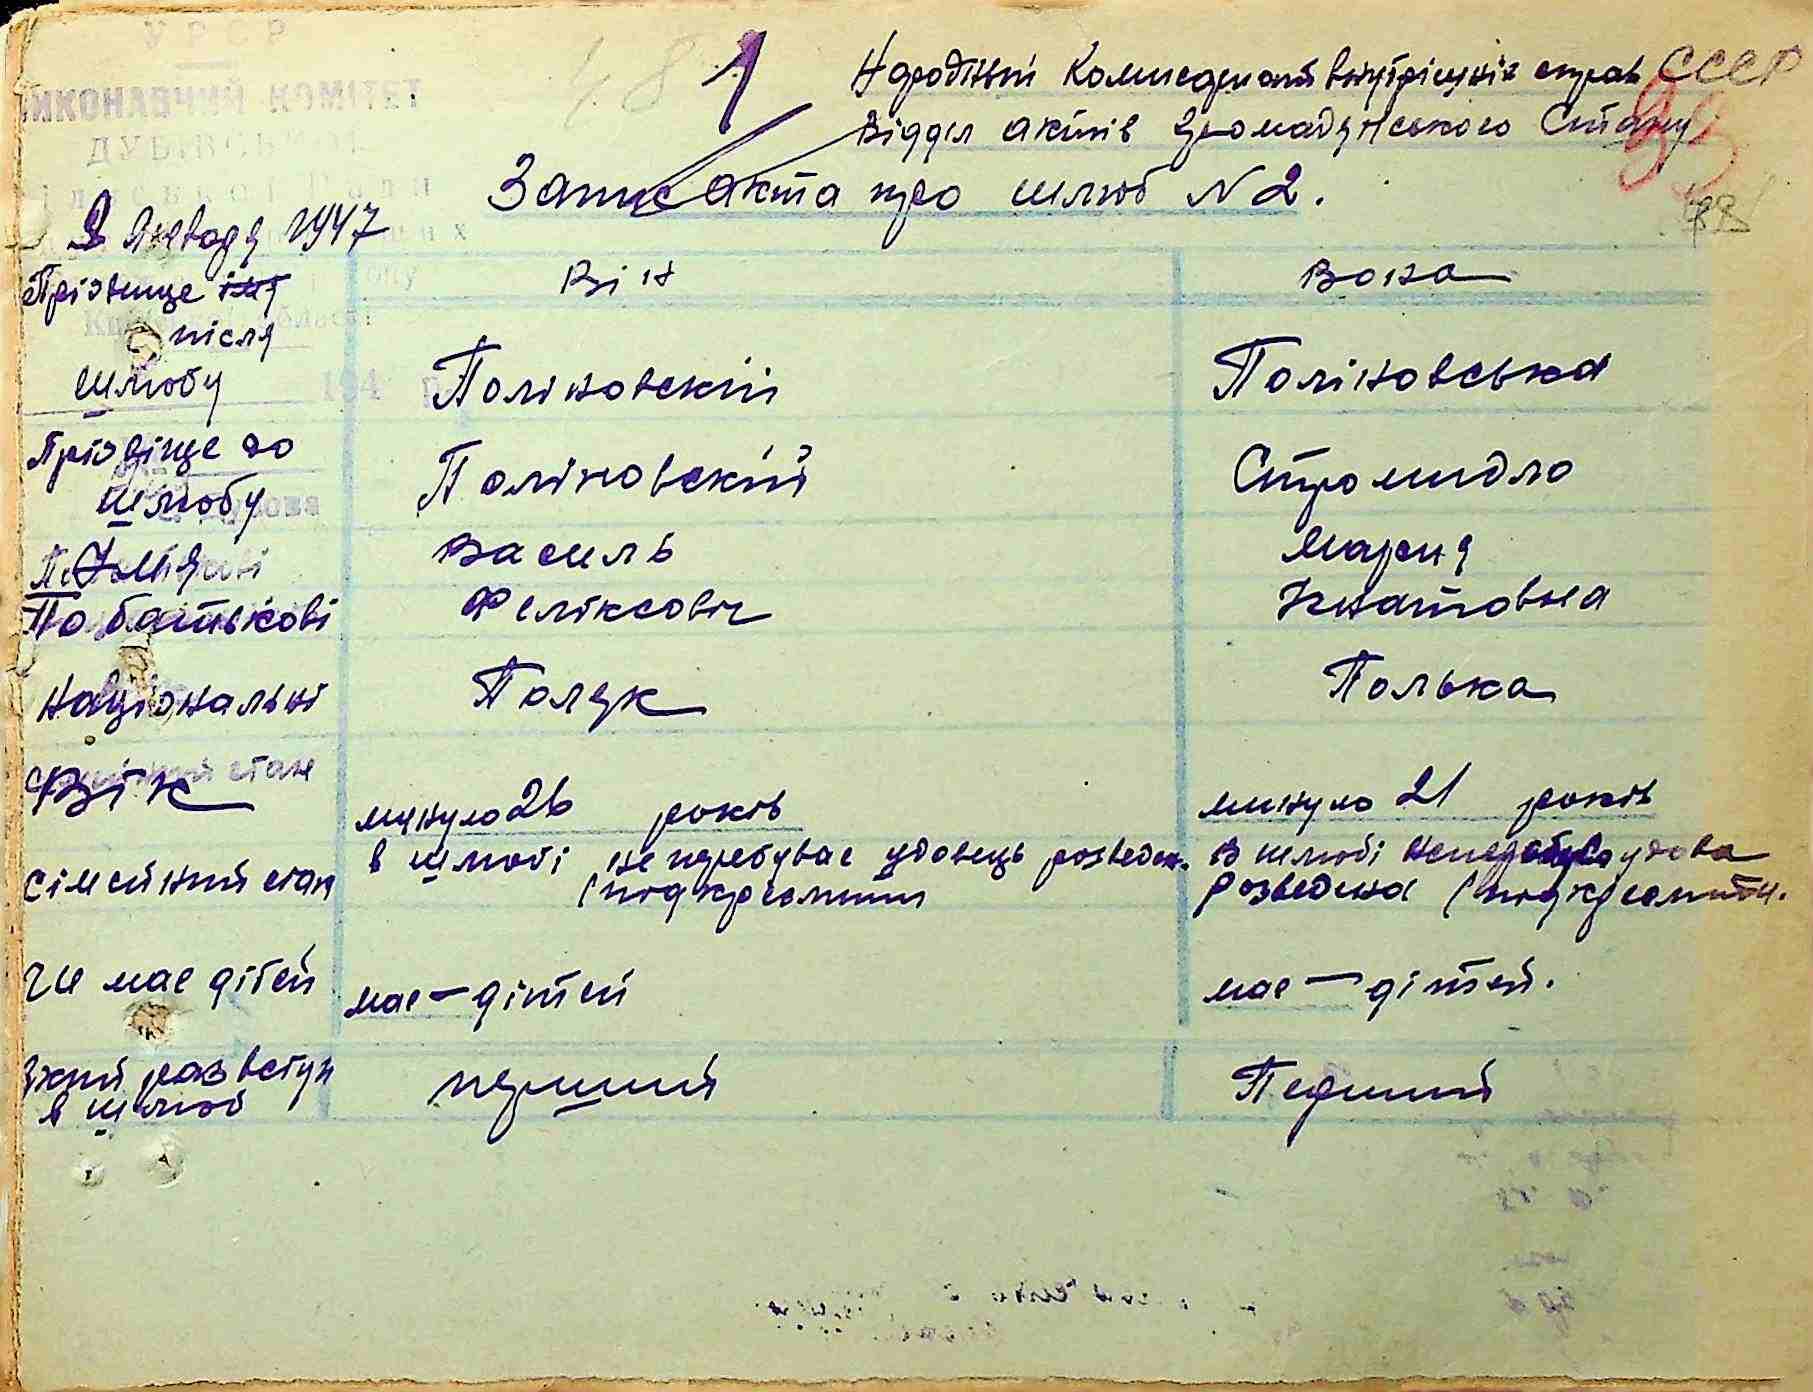 УРСР
ВИКОНАВЧИЙ КОМІТЕТ
ДУБІВСЬКОЇ
1
Народний Комисариат внутрішніх справ СССР
Відділ актів громадянського Стану
Запис акта про шлюб N 2.
2 Января 1947
Прізвище імя після шлюбу
Він
Вона
Поліновскій
Поліновська
Прізвіще до шлюбу
Поліновский
Стромидло
Імя
Василь
Мария
По батькові
Феліксовіч
Ігнатовна
Національні
Поляк
Полька
Вік
минуло 26 років
минуло 21 років
Сімейний стан
в шлюбі не перебуває удовець розведен.
(подкреслити
В шлюбі удова
розведена (подкреслити.
Чи має дітей
має — дітей
має — дітей.
який раз вступ
в шлюб
перший
Перший